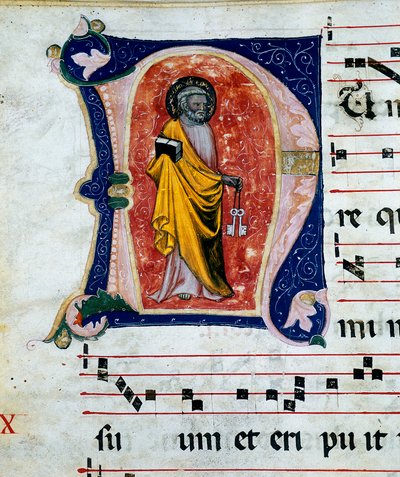 N Un
re qu
mi n
X su um et eri pu it